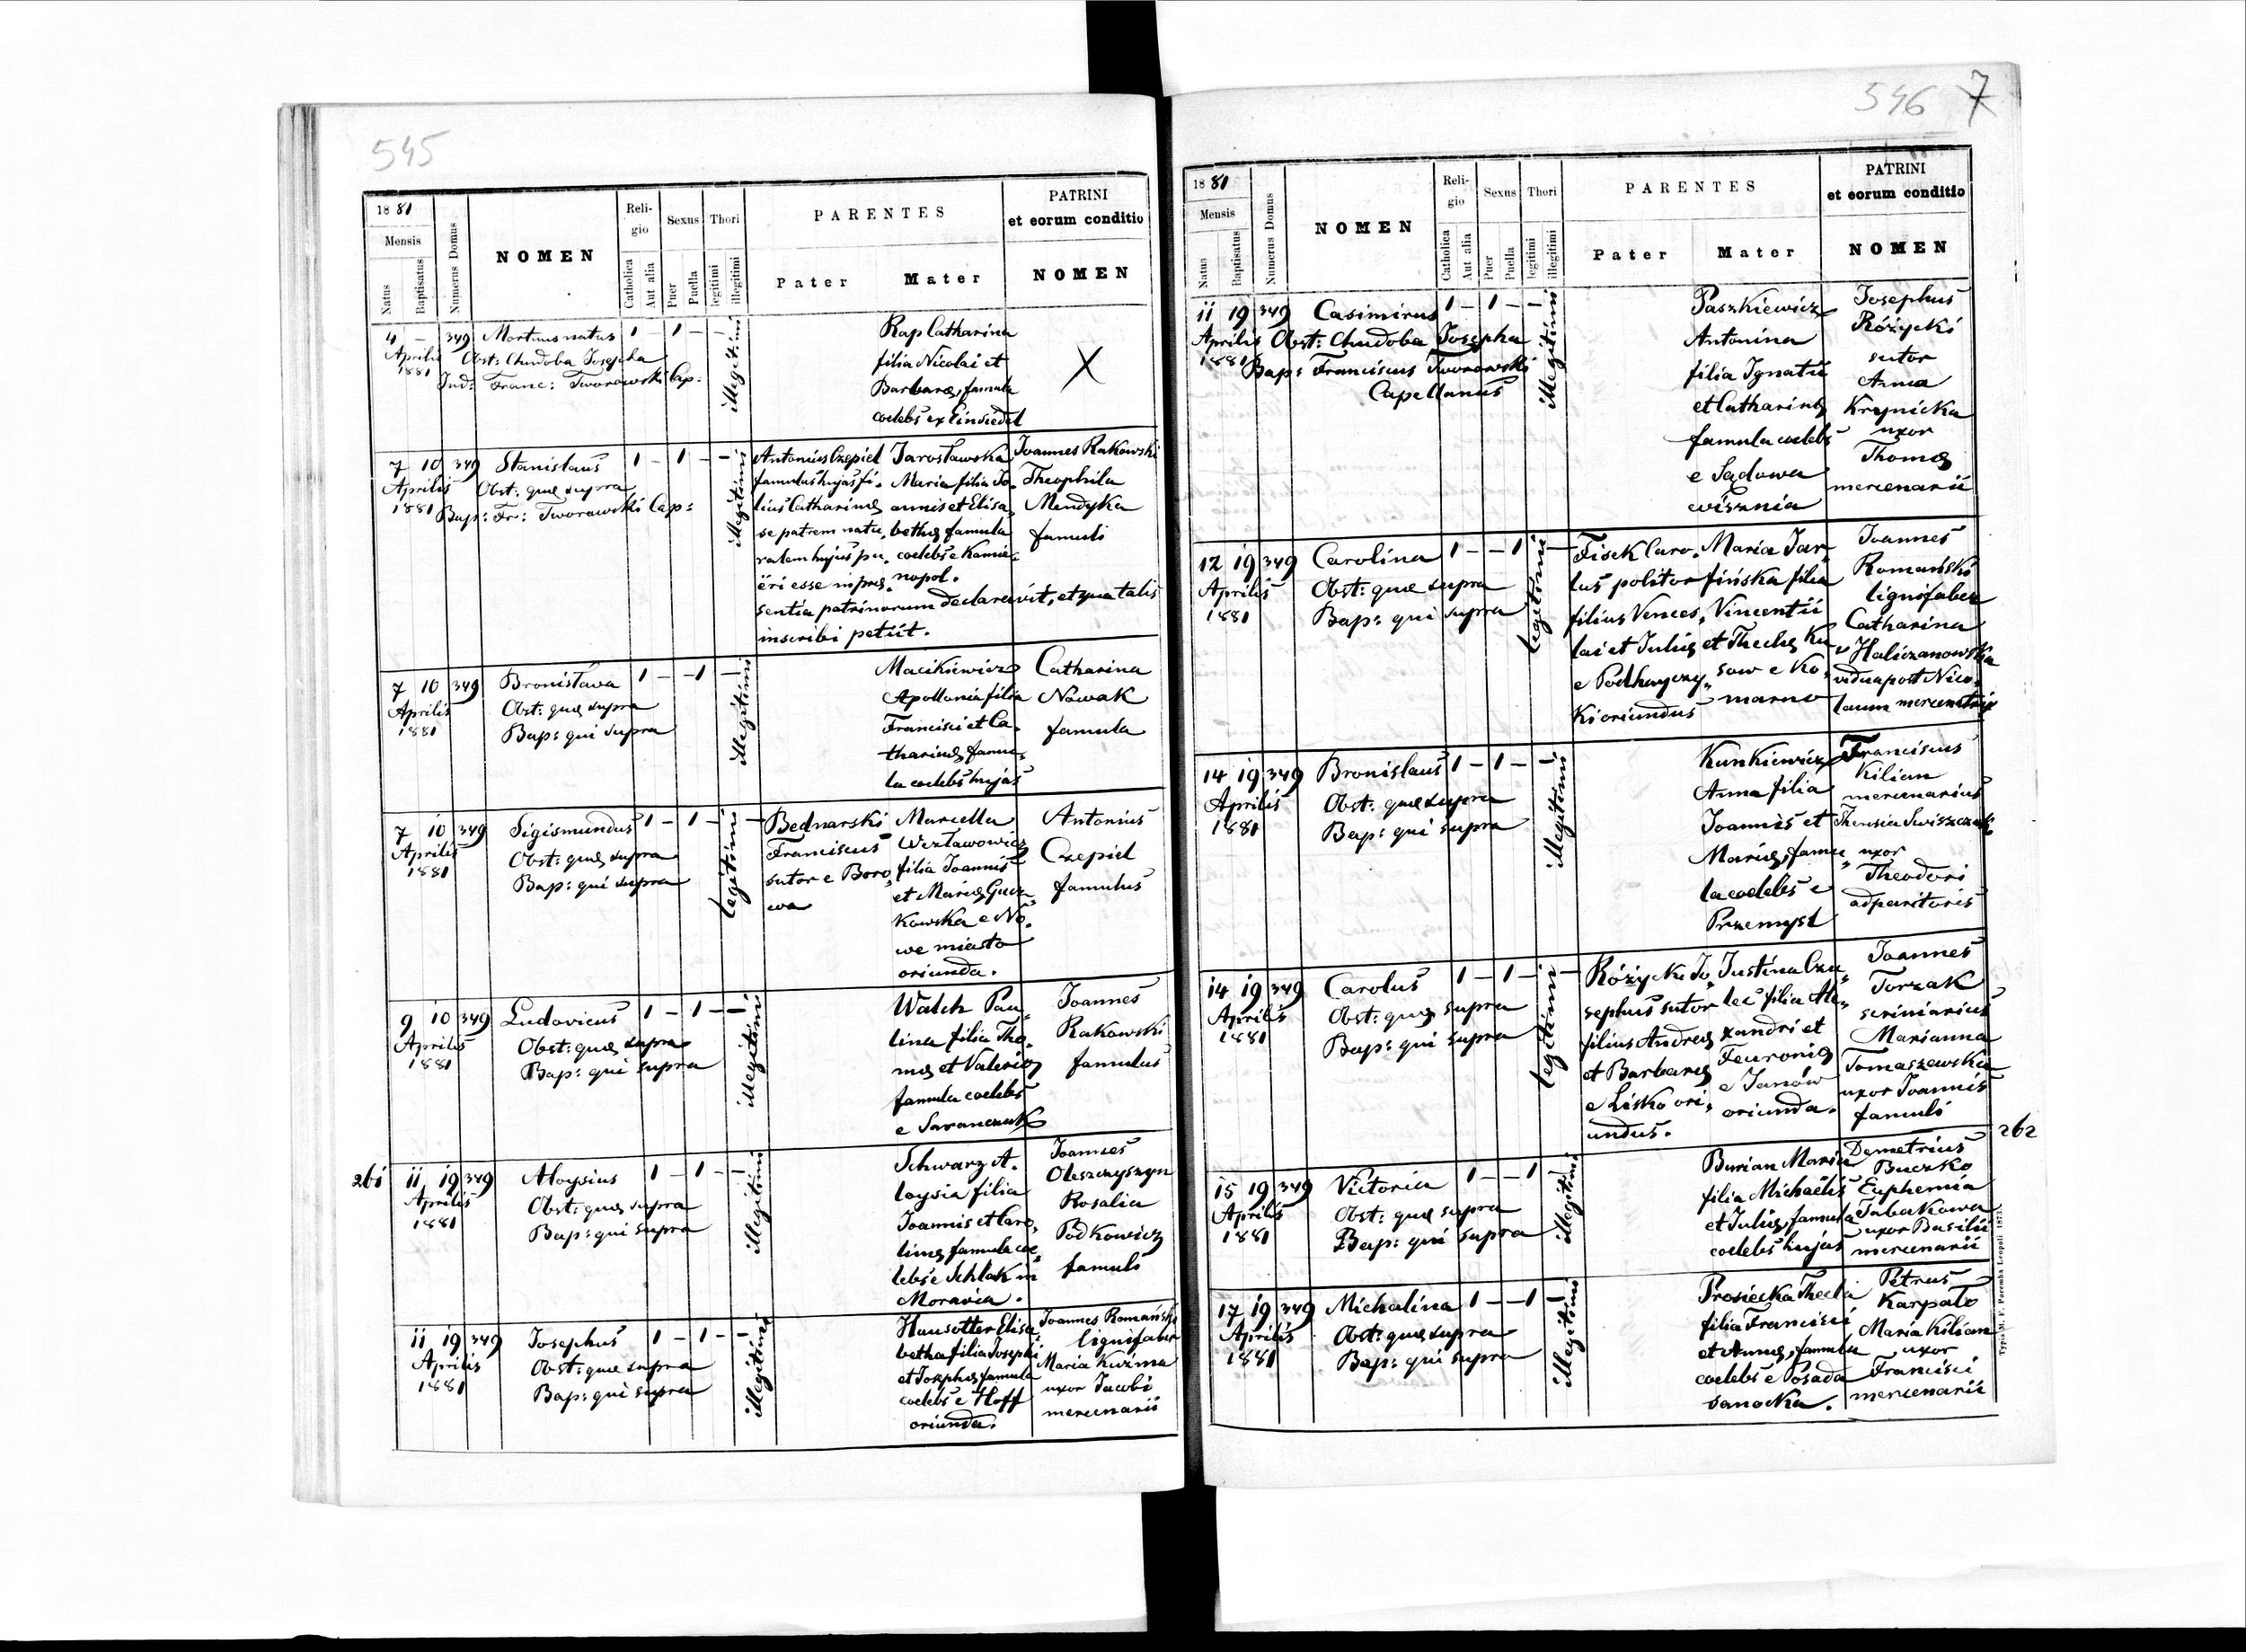 545
18 81
Mensis
Natus
Baptisatus
Numerus Domus
NOMEN
Religio
Catholica
Aut alia
Sexus
Puer
Puella
Thori
legitimi
illegitimi
PARENTES
Pater
Mater
PATRINI
et eorum conditio
NOMEN
4 – 349 Mortuus natus 1 – 1 – –
Aprilis
1881
Obst: Chudoba Josepha
Ind: Franc: Tworowski Cap:
illegitimi
Rap Catharina
filia Nicolai et
Barbaræ, famula
coelebs ex Einsiedel
X
7 10 349 Stanislaus 1 – 1 – – 1
Aprilis
1881
Obst: quæ supra
Bap: Fr: Tworowski Cap:
illegitimi
Antonius Czepiel
famulus hujas fi-
lius Catharinæ
se patrem natu-
ralem hujus pu-
eri esse in præ-
sentia patrinorum declaravit, et qua talis
inscribi petiit.
Jarosławska
Maria filia Jo-
annis et Elisa-
bethæ famula
coelebs e Kamie-
nopol.
Joannes Rakowski
Theophila
Mendyka
famuli
7 10 349 Bronisława 1 – – 1 – 1
Aprilis
1881
Obst: quæ supra
Bap: qui supra
illegitimi
Macikiewicz
Apollonia filia
Francisci et Ca-
tharinæ famu-
la coelebs hujas
Catharina
Nowak
famula
7 10 349 Sigismundus 1 – 1 – 1 –
Aprilis
1881
Obst: quæ supra
Bap: qui supra
legitimi
Bednarski
Franciscus
sutor e Boro-
wa
Marcella
Weztawowicz
filia Joannis
et Mariæ Gucz-
kowska e No-
we miasto
oriunda.
Antonius
Czepiel
famulus
9 10 349 Ludovicus 1 – 1 – – 1
Aprilis
1881
Obst: quæ supra
Bap: qui supra
illegitimi
Walch Pau-
lina filia Tho-
mæ et Valeriæ
famula coelebs
e Saranczuk
Joannes
Rakowski
famulus
261
11 19 349 Aloysius 1 – 1 – – 1
Aprilis
1881
Obst: quæ supra
Bap: qui supra
illegitimi
Schwarz A-
loysia filia
Joannis et Caro-
linæ famula coe-
lebs e Schlak in
Moravia.
Joannes
Oleszczyszyn
Rosalia
Podkowicz
famuli
11 19 349 Josephus 1 – 1 – – 1
Aprilis
1881
Obst: quæ supra
Bap: qui supra
illegitimi
Hausotter Elisa-
betha filia Josephi
et Josephæ famula
coelebs e Hoff
oriunda.
Joannes Romański
lignifaber
Maria Kuźma
uxor Jacobi
mercenarii
546 7
18 81
Mensis
Natus
Baptisatus
Numerus Domus
NOMEN
Religio
Catholica
Aut alia
Sexus
Puer
Puella
Thori
legitimi
illegitimi
PARENTES
Pater
Mater
PATRINI
et eorum conditio
NOMEN
11 19 349 Casimirus 1 – 1 – – 1
Aprilis
1881
Obst: Chudoba Josepha
Bap: Franciscus Tworowski
Capellanus
illegitimi
Paszkiewicz
Antonina
filia Ignatii
et Catharinæ
famula coelebs
e Sądowa
wisznia
Josephus
Różycki
sutor
Anna
Krynicka
uxor
Thomæ
mercenarii
12 19 349 Carolina 1 – – 1 1 –
Aprilis
1881
Obst: quæ supra
Bap: qui supra
legitimi
Fisek Caro-
lus politor
filius Vences-
lai et Juliæ
e Podhayczy-
ki oriundus
Maria Jar-
fińska filia
Vincentii
et Theclæ Ku-
sow e Ko-
marno
Joannes
Romański
lignifaber
Catharina
Haliczanowska
vidua post Nico-
laum mercenatrix
14 19 349 Bronislaus 1 – 1 – – 1
Aprilis
1881
Obst: quæ supra
Bap: qui supra
illegitimi
Kunkiewicz
Anna filia
Joannis et
Mariæ, famu-
la coelebs e
Przemysl
Franciscus
Kilian
mercenarius
Theresia Swiszczak
uxor
Theodori
adparitoris
14 19 349 Carolus 1 – 1 – 1 –
Aprilis
1881
Obst: quæ supra
Bap: qui supra
legitimi
Różycki Jo-
sephus sutor
filius Andreæ
et Barbaræ
e Lisko ori-
undus.
Justina Czu-
lec filia Ale-
xandri et
Feuroniæ
e Janów
oriunda.
Joannes
Torzak
scriniarius
Marianna
Tomaszewska
uxor Joannis
famuli
262
15 19 349 Victoria 1 – – 1 – 1
Aprilis
1881
Obst: quæ supra
Bap: qui supra
illegitimi
Burian Maria
filia Michaëlis
et Juliæ, famula
coelebs hujas
Demetrius
Buczko
Euphemia
Tabakowa
uxor Basilii
mercenarii
17 19 349 Michalina 1 – – 1 – 1
Aprilis
1881
Obst: quæ supra
Bap: qui supra
illegitimi
Prosiecka Thecla
filia Francisci
et Annæ, famula
coelebs e Posada
sanocka.
Petrus
Karpalo
Maria Kilian
uxor
Francisci
mercenarii
Typis M. F. Poremba Leopoli 1873.